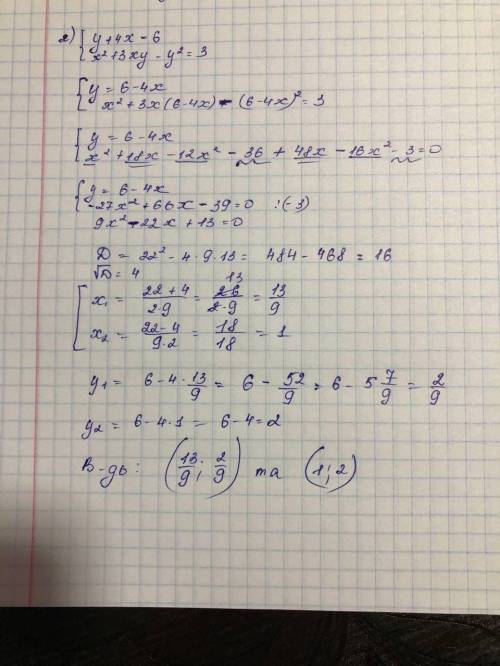 2) { y + 4x - 6
x² + 3xy - y² = 3
{ y = 6 - 4x
x² + 3x(6 - 4x) - (6 - 4x)² = 3
{ y = 6 - 4x
x² + 18x - 12x² - 36 + 48x - 16x² - 3 = 0
{ y = 6 - 4x
-27x² + 66x - 39 = 0 :(-3)
9x² - 22x + 13 = 0
D = 22² - 4 · 9 · 13 = 484 - 468 = 16
√D = 4
[ x₁ = (22 + 4)/(2 · 9) = 26/(2 · 9) 13 = 13/9
x₂ = (22 - 4)/(9 · 2) = 18/18 = 1
y₁ = 6 - 4 · 13/9 = 6 - 52/9 = 6 - 5 7/9 = 2/9
y₂ = 6 - 4 · 1 = 6 - 4 = 2
В-дь: (13/9; 2/9) та (1; 2)